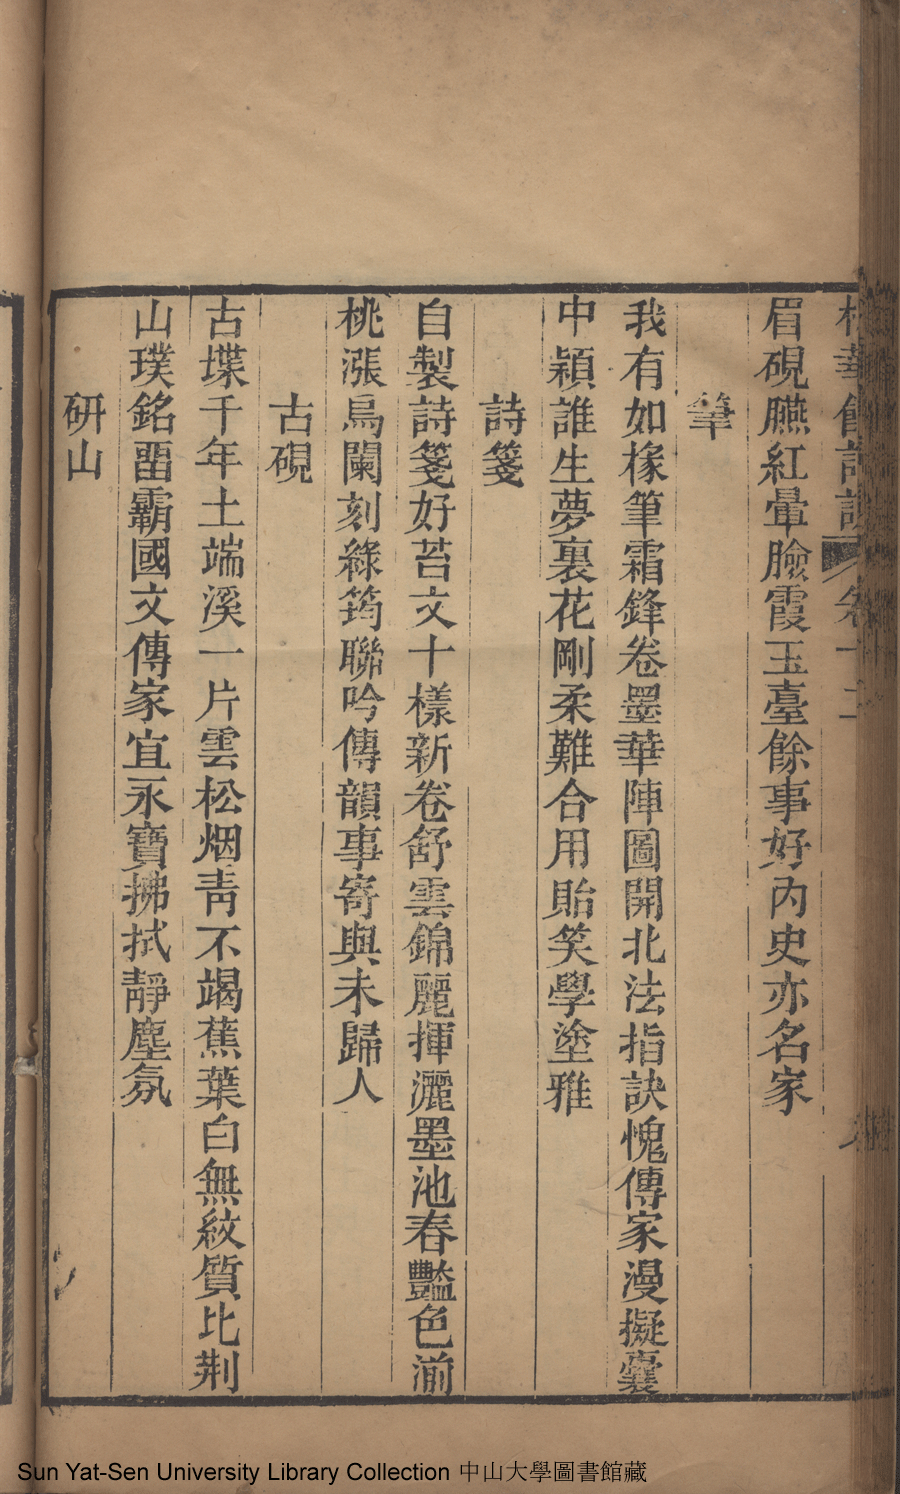 眉硯臙紅暈臉霞玉臺餘事好內史亦名家
筆
我有如椽筆霜鋒卷墨華陣圖開北法指訣愧傳家漫擬囊
中穎誰生夢裏花剛柔難合用貽笑學塗雅
詩箋
自製詩箋好苔文十樣新卷舒雲錦麗揮灑墨池春豔色湔
桃漲烏闌刻綠筠聯吟傳韻事寄與未歸人
古硯
古墣千年土端溪一片雲松烟青不竭蕉葉白無紋質比荆
山璞銘畱霸國文傳家宜永寶拂拭靜塵氛
研山
Sun Yat-Sen University Library Collection 中山大學圖書館藏